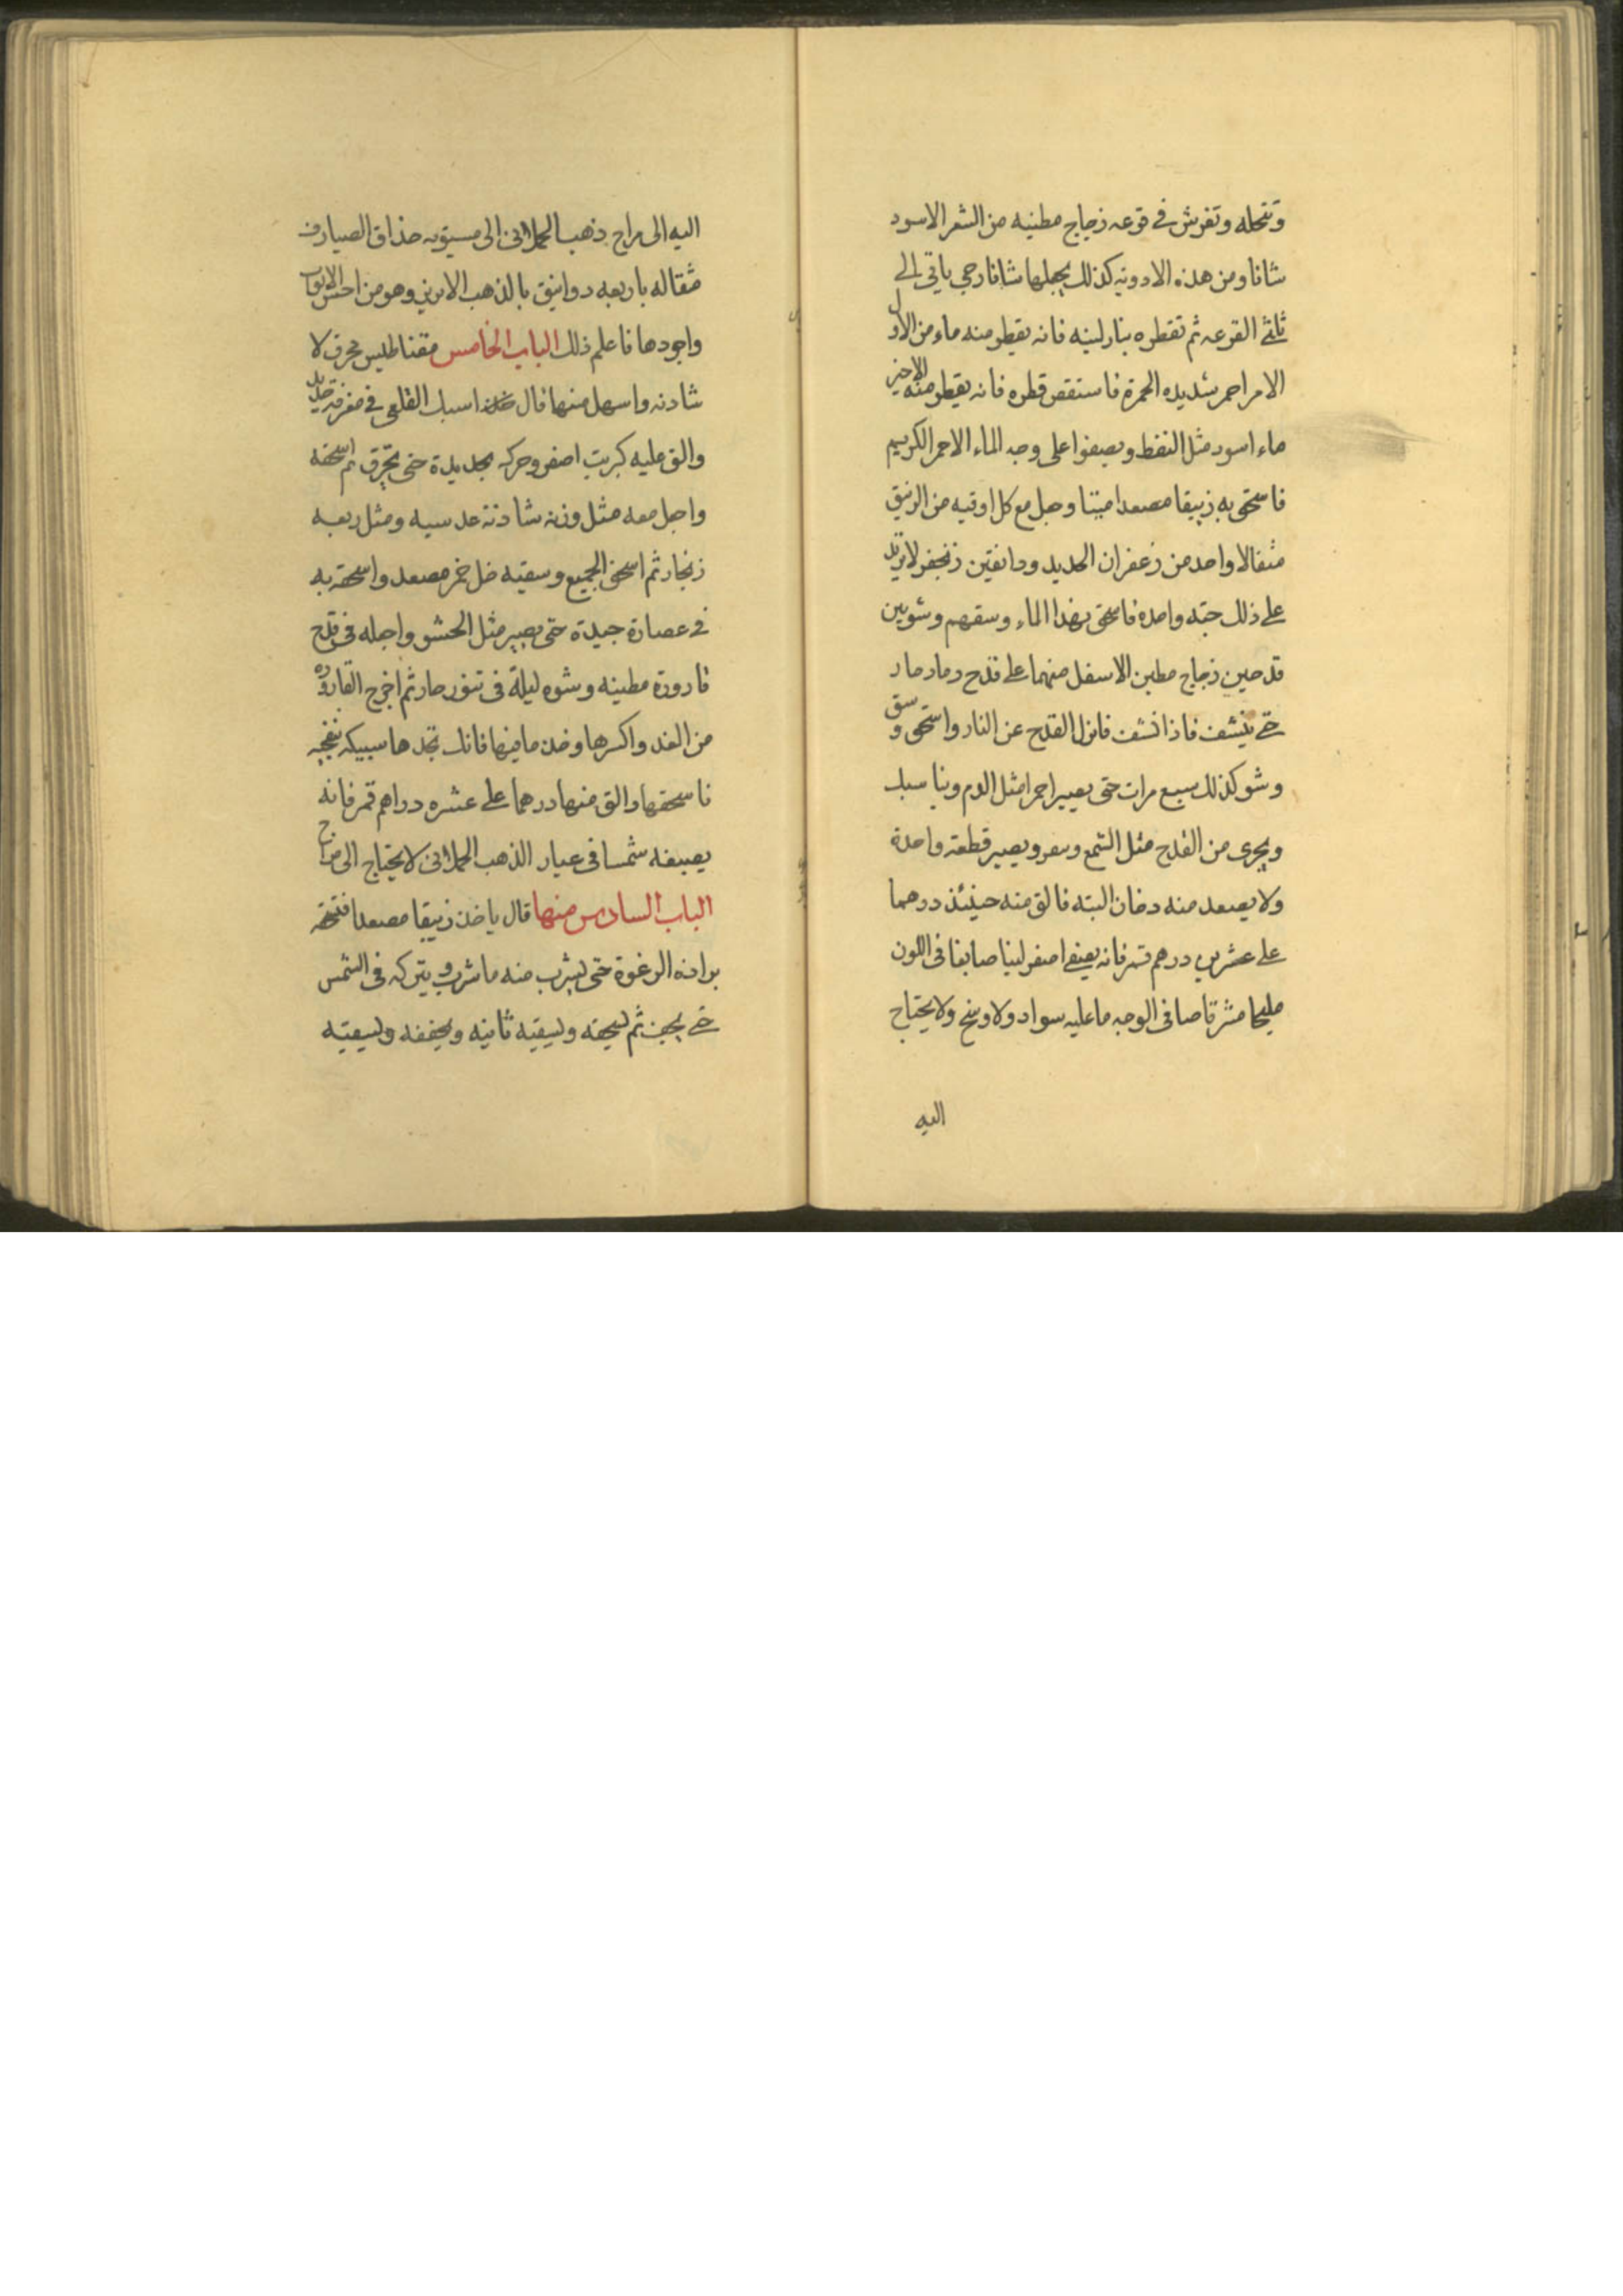 وتنخله وتفرش في قرعه زجاج مطينه من الشعر الاسود
شانا ومن هذه الادويه كذلك يجعلها شانا رحي ياتي الى
ثلثي القرعه ثم تقطره بنار لينه فانه يقطر منه ماء من الاول
الامر احمر شديده الحمرة فاستقص قطره فانه يقطر منه الاخير
ماء اسود مثل النفط ويصفوا على وجه الماء الاحمر الكريم
فاسحق به زيبقا مصعدا ميتا وجل مع كل اوقيه من الزيبق
مثقالا واحد من زعفران الحديد ودانقين زنجفر لا تزيد
على ذلك حبه واحده فاسحق بهذا الماء وسقهم وشوبين
قدحين زجاج مطين الاسفل منهما على قدح رماد حار
حتى ينشف فاذا نشف فانزل القدح عن النار واسحق وسق
وشو كذلك سبع مرات حتى يصير احمرا مثل الدم
ويجرى من القدح مثل الشمع ويصير قطعة واحدة
ولا يصعد منه دخان البته فالق منه حينئذ درهما
على عشرين درهم قمر فانه اصفر لينا صابغا في اللون
مليحا مشرقا صافي الوجه ما عليه سواد ولا وسخ ولا يحتاج
اليه
اليه الى مزاج ذهب الحملانى الى حذاق الصيارف
مثقاله باربعه دوانيق بالذهب الابريز وهو من احسن الابواب
واجودها فاعلم ذلك الباب الخامس مقناطيس محرق لا
شادنه واسهل منها قال خذ اسبك القلعى في مغرفة حديد
والق عليه كبريت اصفر وحركه بحديدة حتى يحترق ثم اسحقه
واجل معه مثل وزنه شادنة عدسيه ومثل ربعه
زنجار ثم اسحق الجميع وسقيه خل خمر مصعد واسحقه به
في عصارة جيدة حتى يصير مثل الحشو واجله في قدح
قارورة مطينه وشوه ليلة في تنور حار ثم اخرج القاروره
من الغد واكسرها وخذ ما فيها فانك تجدها سبيكه
فاسحقها والق منها درهما على عشره دراهم قمر فانه
يصبغه شمسا في عيار الذهب الحملانى لا يحتاج الى مزاج
الباب السادس منها قال ياخذ زيبقا مصعدا فتسحقه
الرغوة حتى يشرب منه ما شرب ويتركه في الشمس
حتى يجف ثم يسحقه ويسقيه ثانيه ويجففه ويسقيه